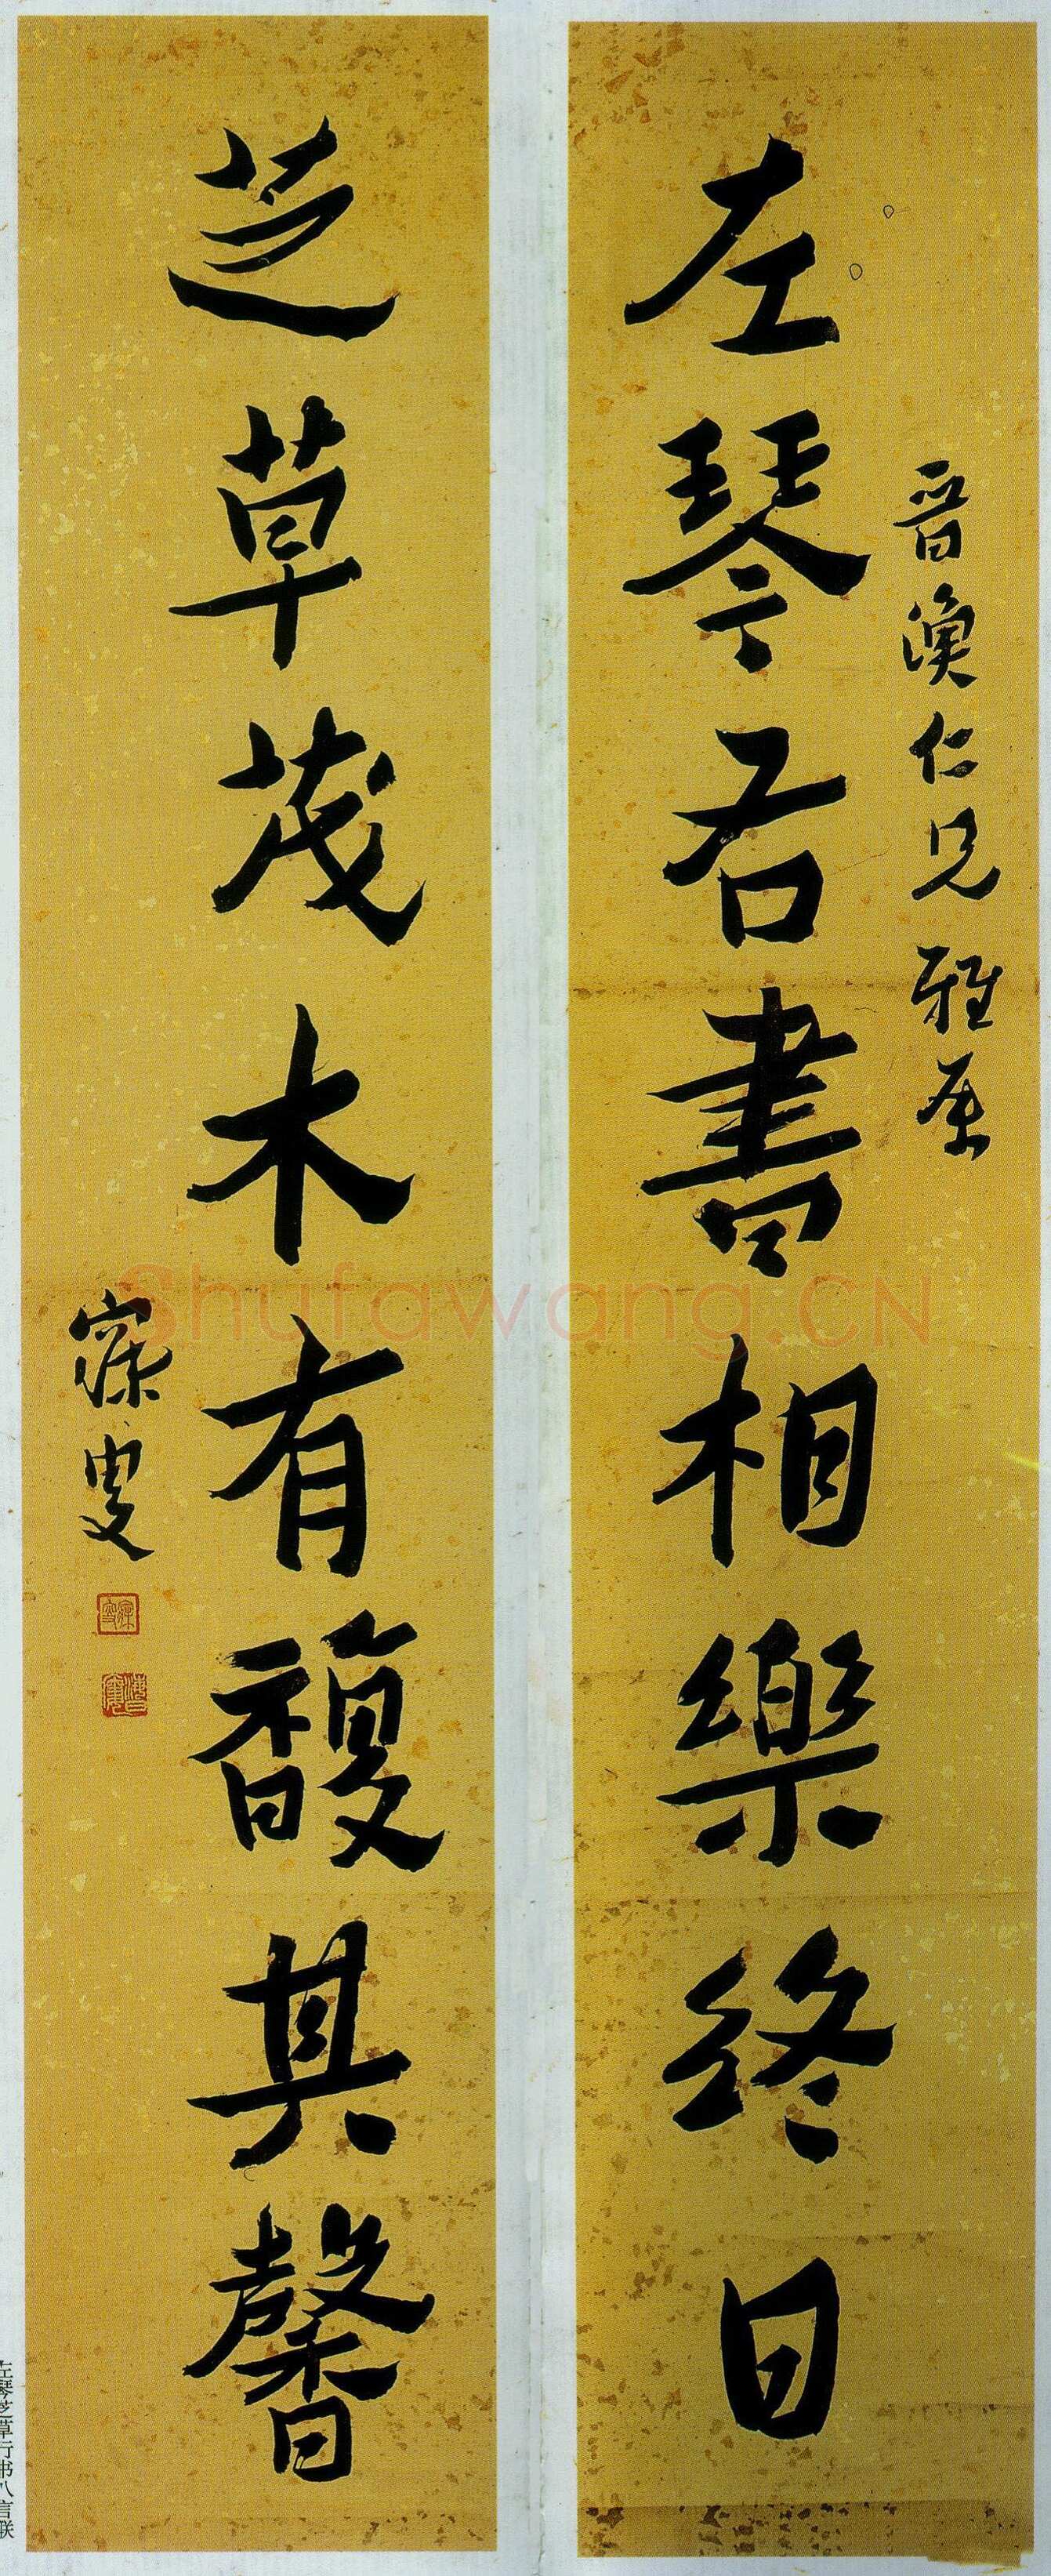 晋渙仁兄雅屬
左琴右書相樂終日
芝草茂木有馥其馨
寐叟
Shufawang.CN
左琴芝草行书八言联